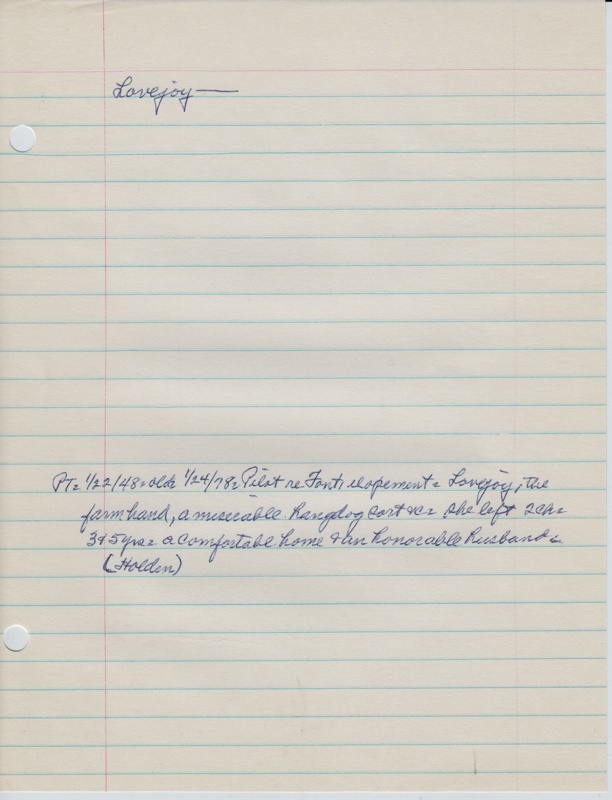 Lovejoy —
PT= 1/22/48= olds 1/24/78= Pilot re Font elopement = Lovejoy, the
farm hand, a miserable hangdog sort &c = she left 2 ch =
3 & 5 yrs = a comfortable home & an honorable husband =
(Holden)